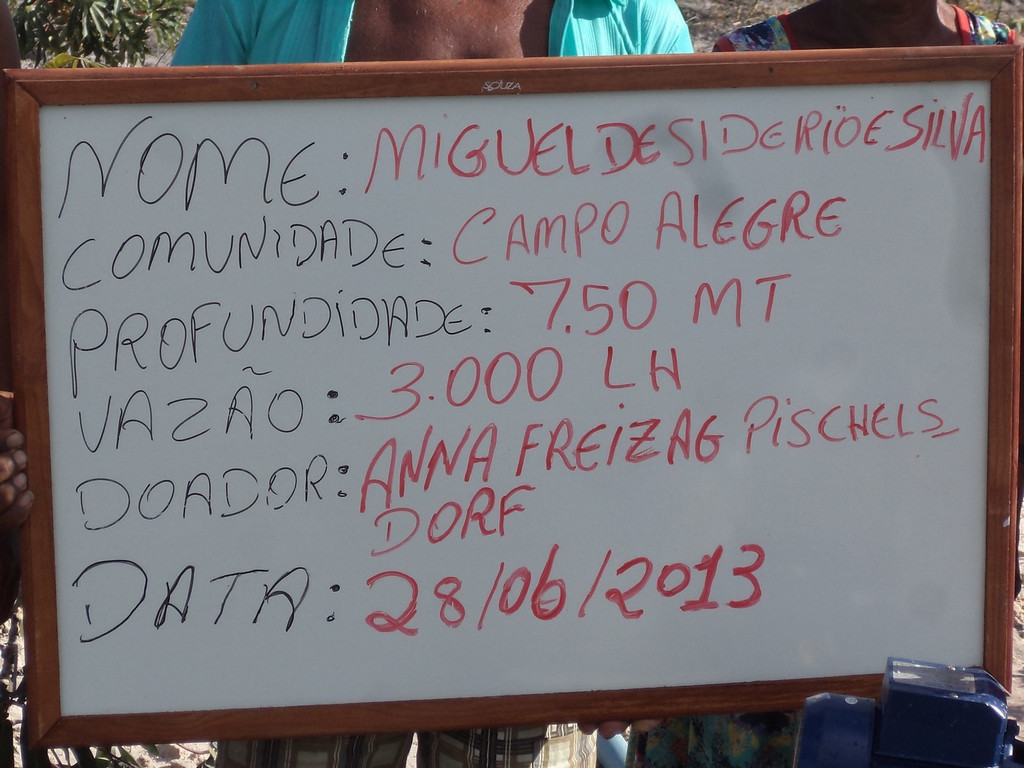 SOUZA
NOME: MIGUEL DESIDERIO E SILVA
COMUNIDADE: CAMPO ALEGRE
PROFUNDIDADE: 7.50 MT
VAZÃO: 3.000 LH
DOADOR: ANNA FREIZAG PISCHELS_
DORF
DATA: 28/06/2013